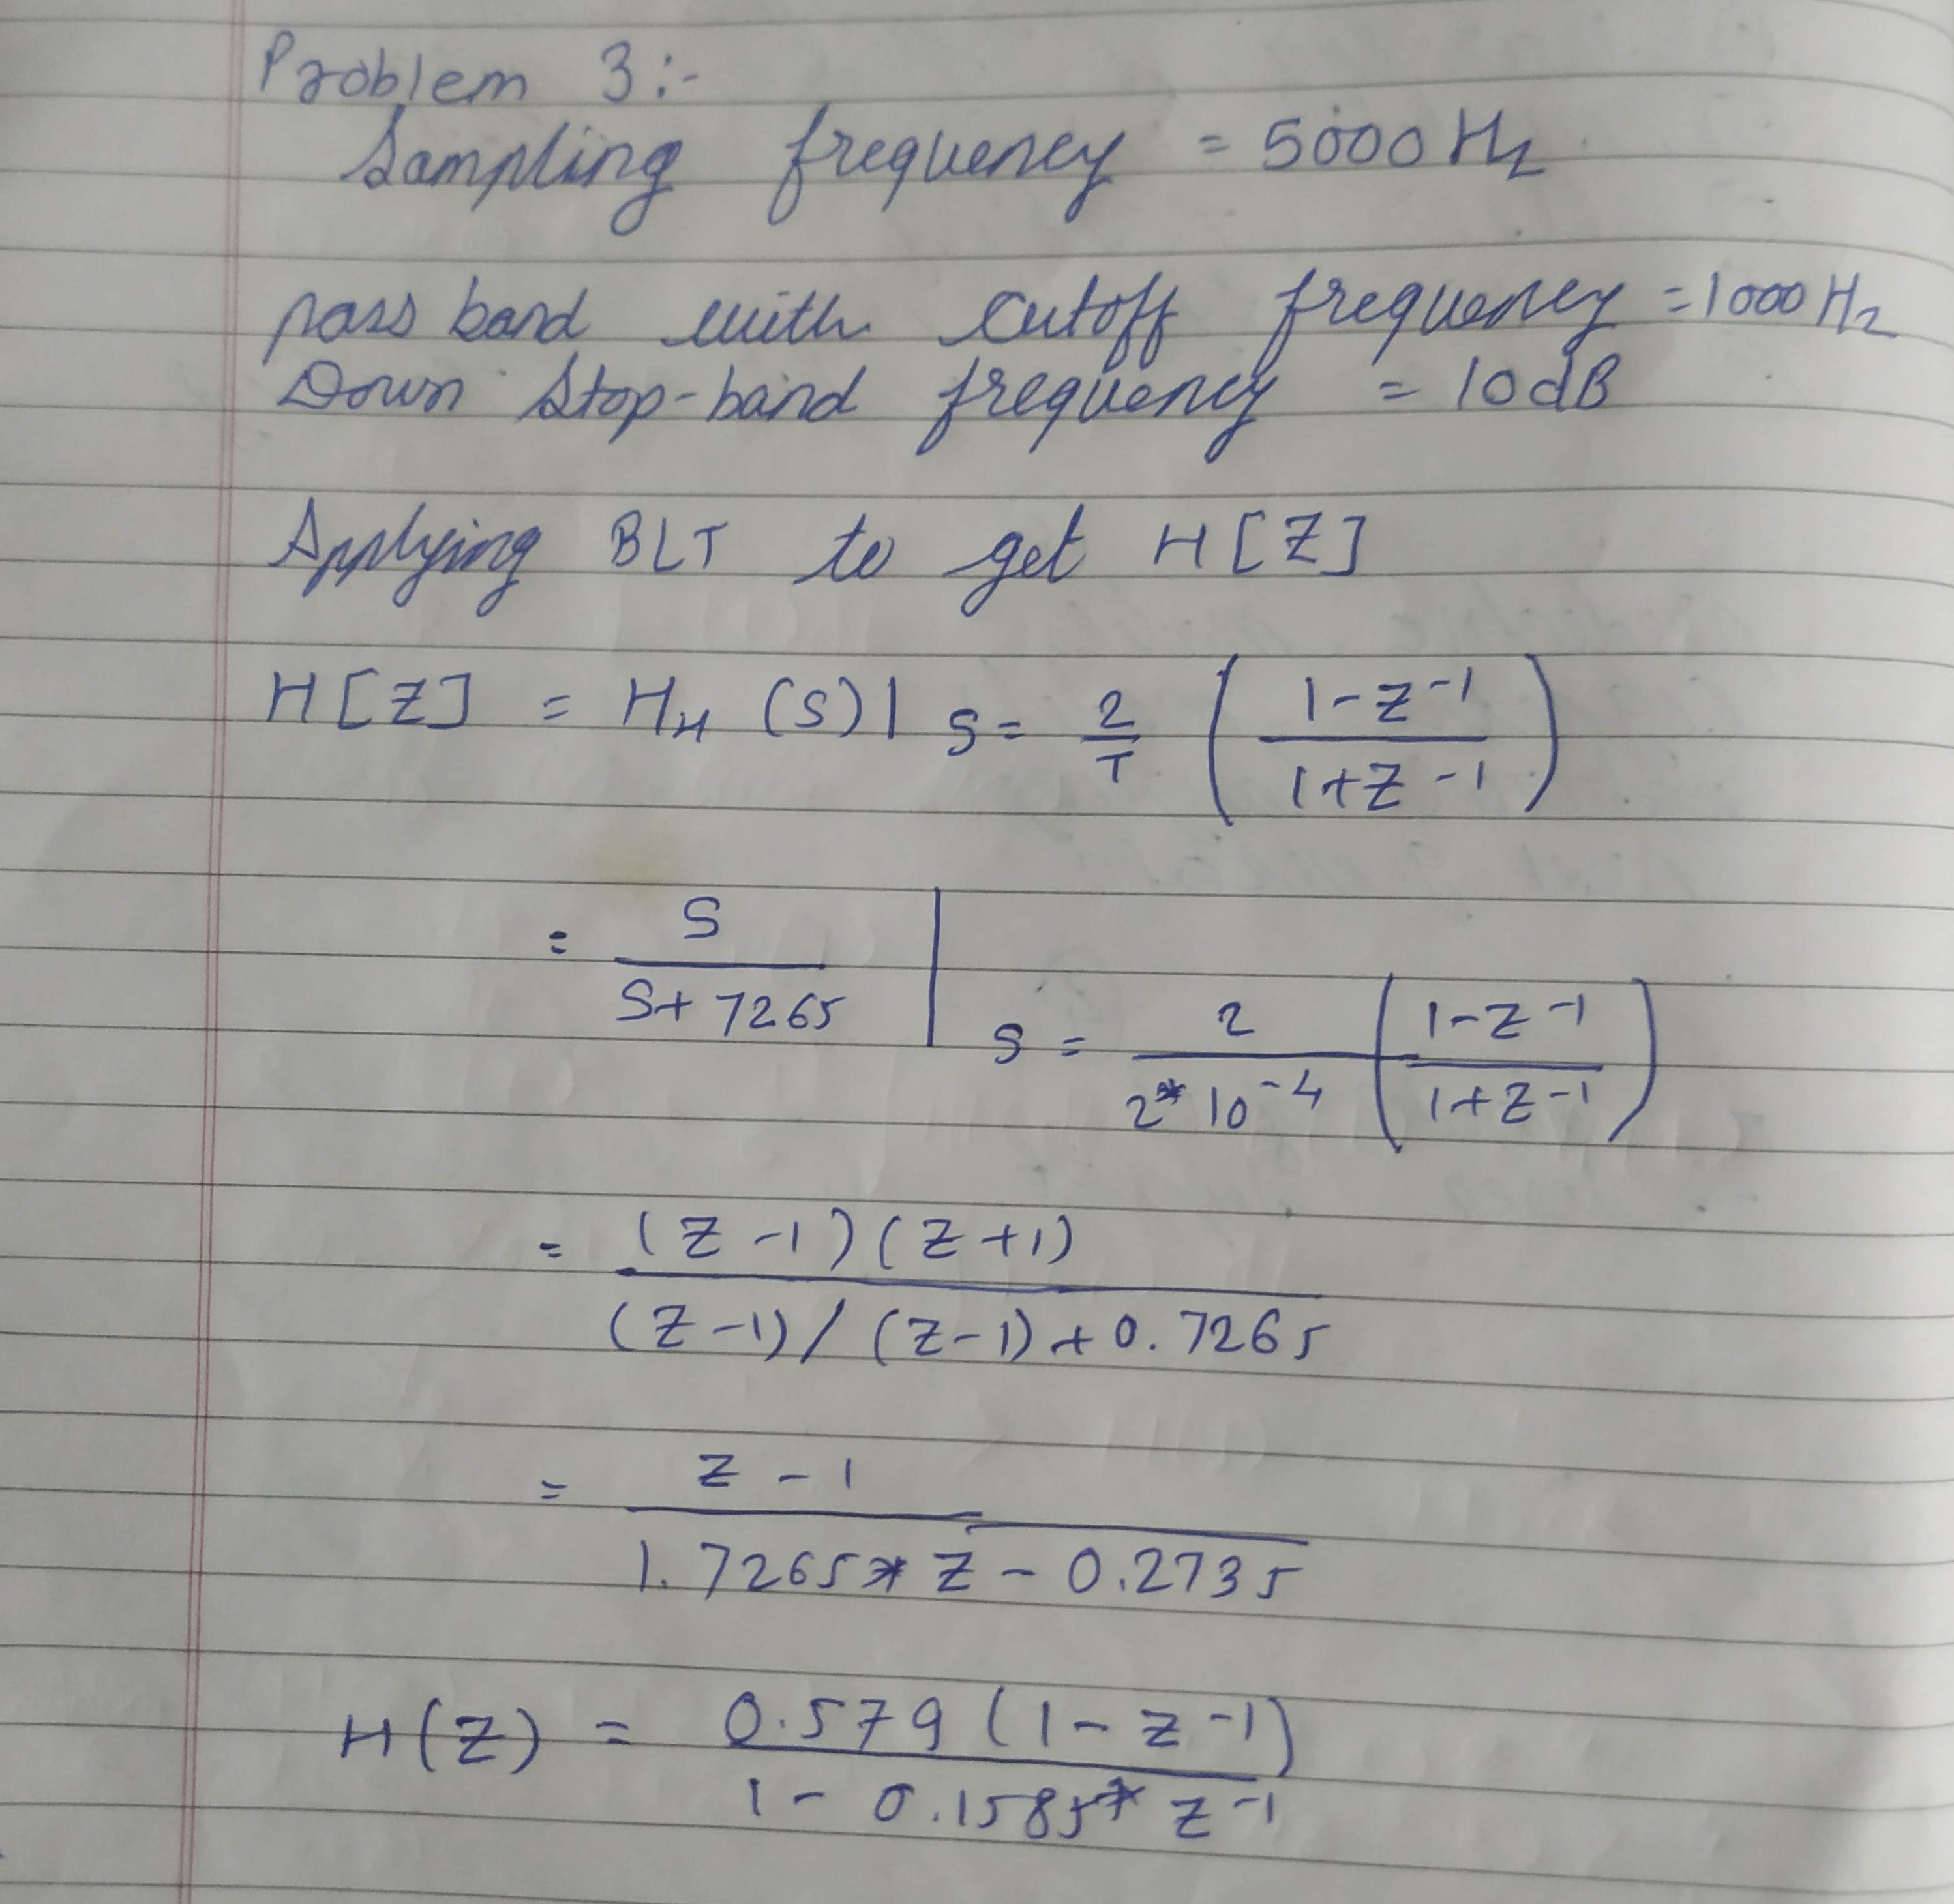 Problem 3:-
Sampling frequency = 5000 Hz
pass band with cutoff frequency = 1000 Hz
Down Stop-band frequency = 10 dB
Applying BLT to get H[Z]
H[Z] = H_H (S) | S = 2/T ( (1-Z^-1) / (1+Z^-1) )
= S / (S + 7265) | S = 2 / (2*10^-4) ( (1-Z^-1) / (1+Z^-1) )
= (Z-1)(Z+1) / ((Z-1)/(Z-1) + 0.7265)
= (Z-1) / (1.7265*Z - 0.2735)
H(Z) = 0.579(1-Z^-1) / (1-0.1585*Z^-1)